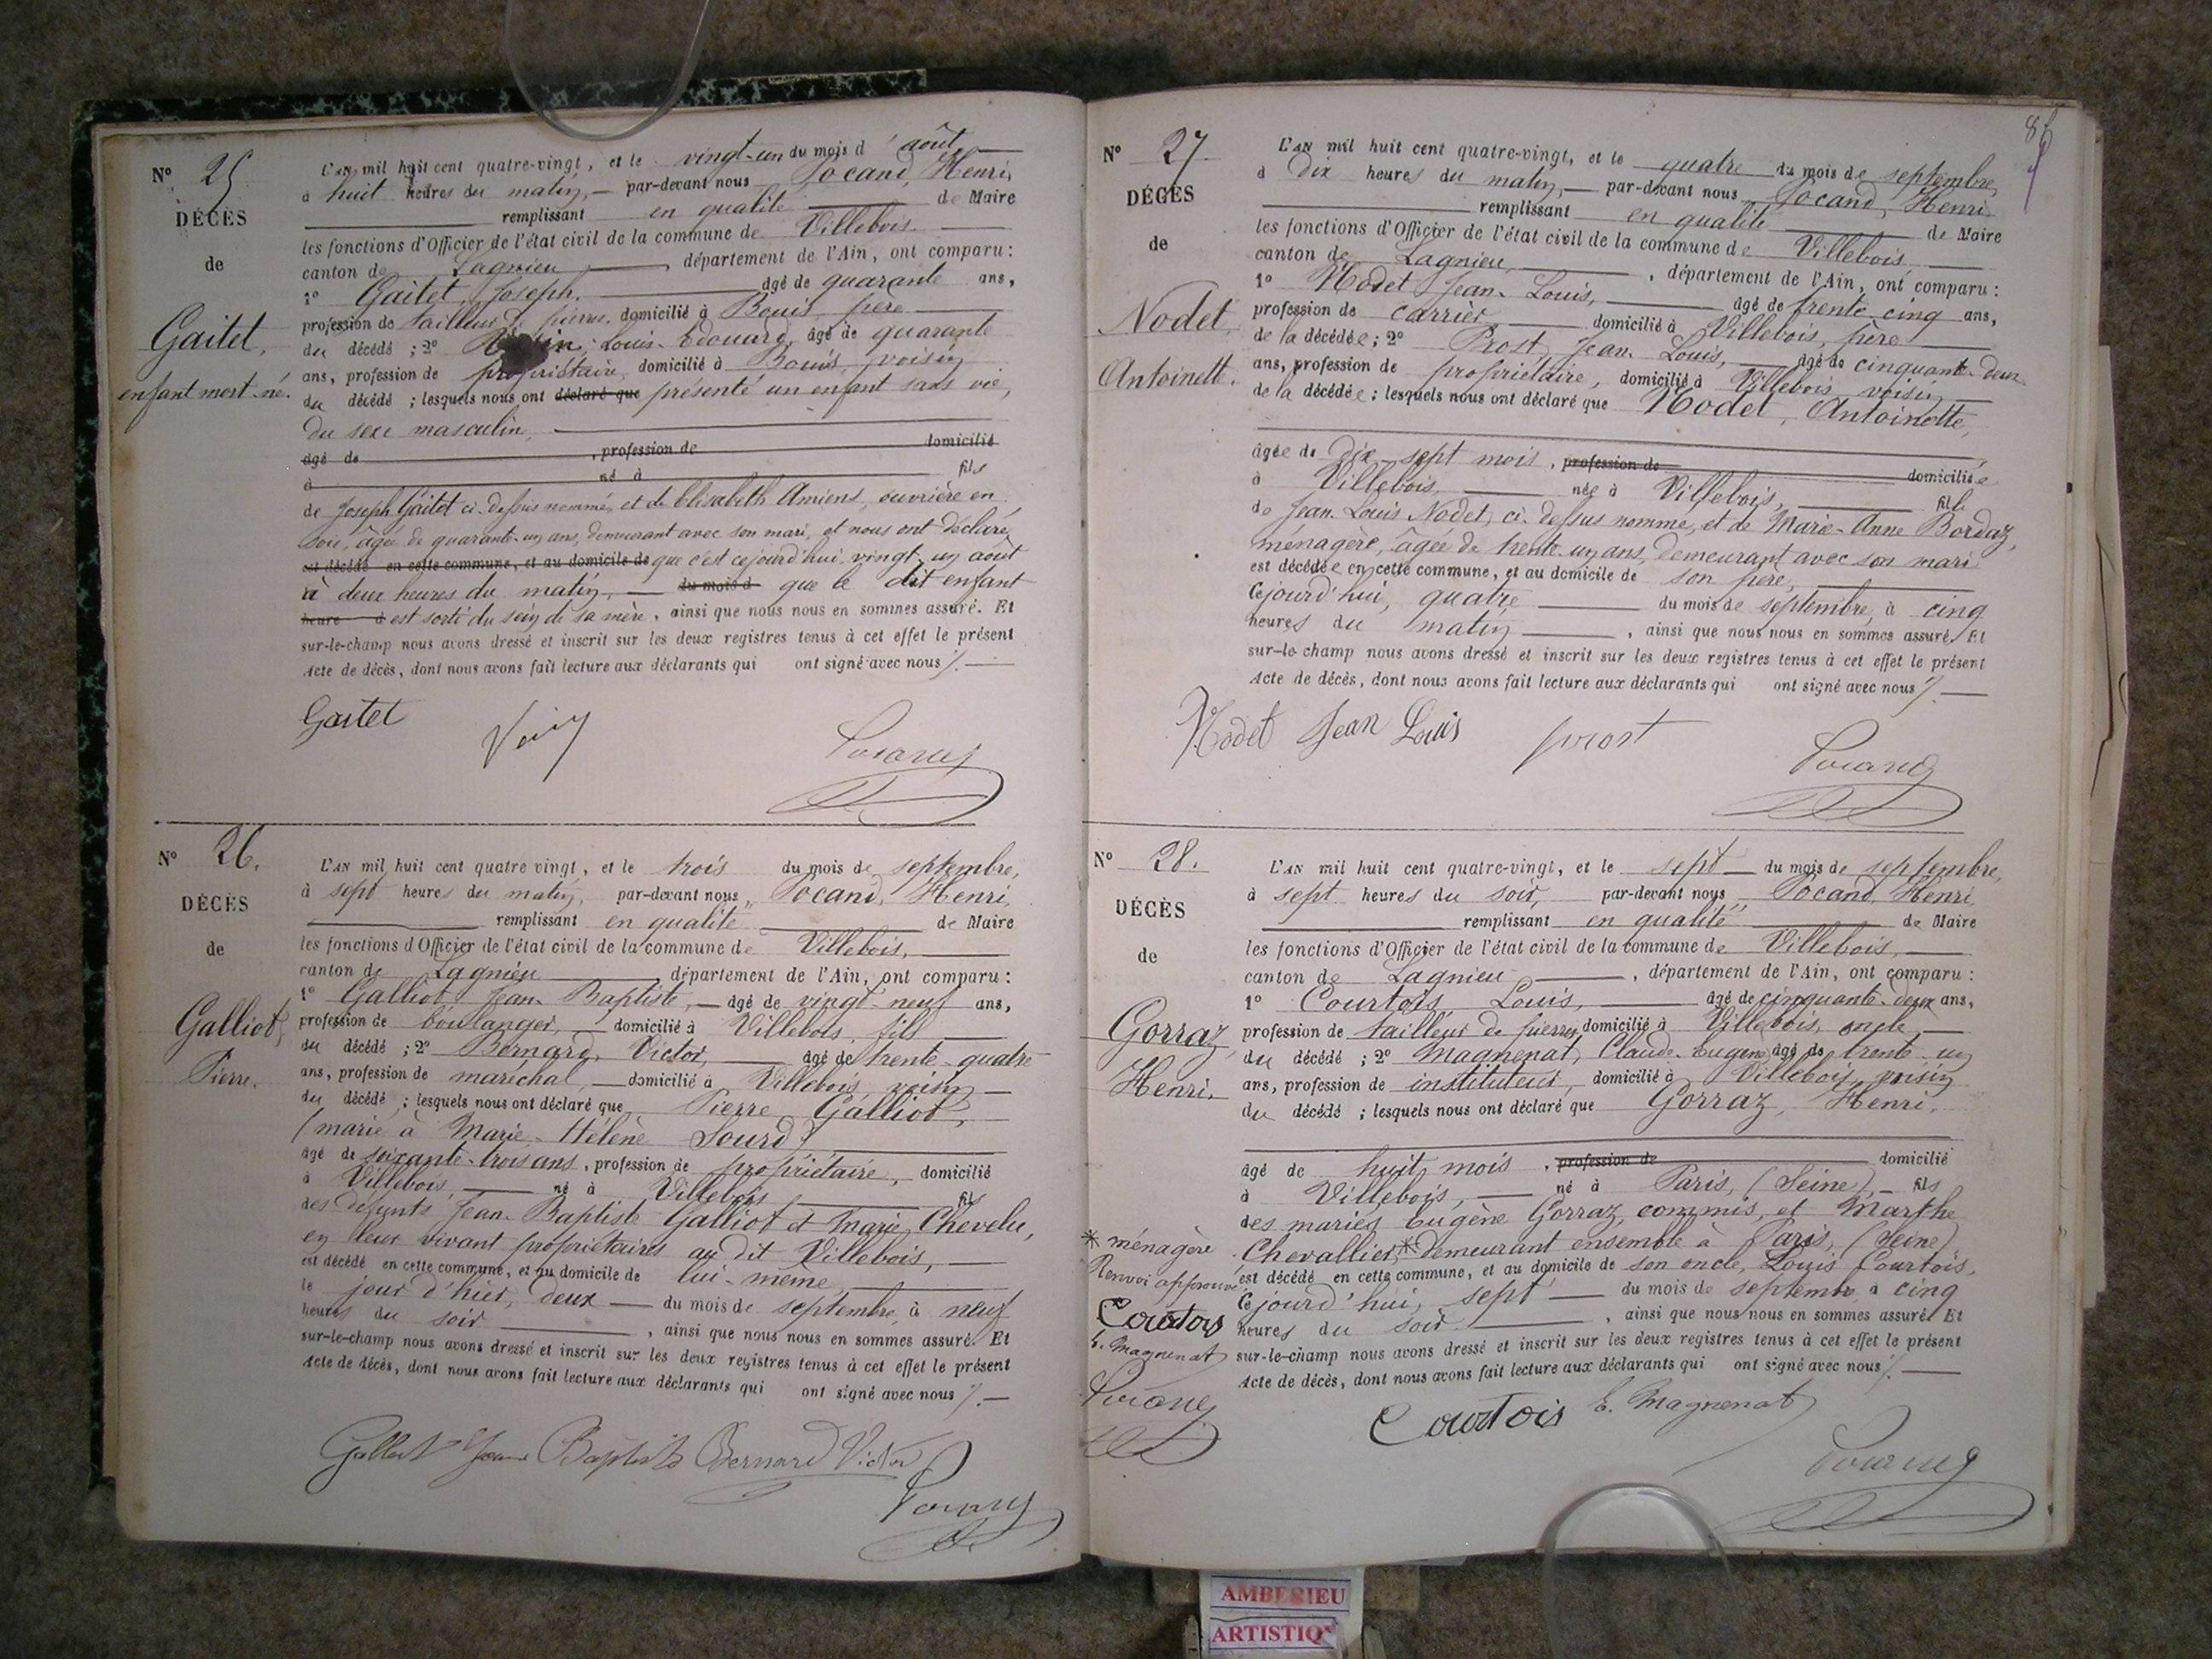 N° 25
DÉCÈS
de
Gaitet,
enfant mort-né.
L'AN mil huit cent quatre-vingt, et le vingt-un du mois d'août,
à huit heures du matin, par-devant nous Jocand, Henri,
remplissant en qualité de Maire
les fonctions d'Officier de l'état civil de la commune de Villebois
canton de Lagnieu, département de l'Ain, ont comparu :
1° Gaitet, Joseph, âgé de quarante ans,
profession de tailleur de pierres, domicilié à Bouis, père
du décédé ; 2° Louis-Edouard, âgé de quarante
ans, profession de propriétaire, domicilié à Bouis, voisin
du décédé ; lesquels nous ont déclaré que présenté un enfant sans vie,
du sexe masculin,
âgé de , profession de domicilié
à né à fils
de Joseph Gaitet ci-dessus nommé, et de Elisabeth Amiens, ouvrière en
soie, âgée de quarante-un ans, demeurant avec son mari, et nous ont déclaré
est décédé en cette commune, et au domicile de que c'est cejourd'hui vingt-un août
à deux heures du matin, du mois d que le dit enfant
heure d est sorti du sein de sa mère, ainsi que nous nous en sommes assuré. Et
sur-le-champ nous avons dressé et inscrit sur les deux registres tenus à cet effet le présent
Acte de décès, dont nous avons fait lecture aux déclarants qui ont signé avec nous ./.
Gaitet
Jocand
N° 26.
DÉCÈS
de
Galliot,
Pierre.
L'AN mil huit cent quatre vingt, et le trois du mois de septembre,
à sept heures du matin, par-devant nous, Jocand, Henri,
remplissant en qualité de Maire
les fonctions d'Officier de l'état civil de la commune de Villebois,
canton de Lagnieu, département de l'Ain, ont comparu :
1° Galliot, Jean-Baptiste, âgé de vingt-neuf ans,
profession de boulanger, domicilié à Villebois, fils
du décédé ; 2° Bernard, Victor, âgé de trente-quatre
ans, profession de maréchal, domicilié à Villebois, voisin
du décédé ; lesquels nous ont déclaré que Pierre Galliot,
(marié à Marie-Hélène Sourd)
âgé de soixante-trois ans, profession de propriétaire, domicilié
à Villebois, né à Villebois, fils
des défunts Jean-Baptiste Galliot et Marie Chevelu,
en leur vivant propriétaires au dit Villebois,
est décédé en cette commune, et au domicile de lui-même,
le jour d'hier, deux du mois de septembre, à neuf
heures du soir, ainsi que nous nous en sommes assuré. Et
sur-le-champ nous avons dressé et inscrit sur les deux registres tenus à cet effet le présent
Acte de décès, dont nous avons fait lecture aux déclarants qui ont signé avec nous ./.
Galliot Jean Baptiste Bernard Victor
Jocand
86
N° 27
DÉCÈS
de
Nodet,
Antoinette.
L'AN mil huit cent quatre-vingt, et le quatre du mois de septembre,
à dix heures du matin, par-devant nous Jocand, Henri
remplissant en qualité de Maire
les fonctions d'Officier de l'état civil de la commune de Villebois
canton de Lagnieu, département de l'Ain, ont comparu :
1° Nodet Jean-Louis, âgé de trente cinq ans,
profession de carrier, domicilié à Villebois, père
de la décédée ; 2° Prost, Jean-Louis, âgé de cinquante-deux
ans, profession de propriétaire, domicilié à Villebois, voisin
de la décédée ; lesquels nous ont déclaré que Nodet, Antoinette,
âgée de dix-sept mois, profession de domiciliée
à Villebois, née à Villebois, fille
de Jean-Louis Nodet, ci-dessus nommé, et de Marie-Anne Bordaz,
ménagère, âgée de trente-un ans, demeurant avec son mari
est décédée en cette commune, et au domicile de son père,
Cejourd'hui, quatre du mois de septembre, à cinq
heures du matin, ainsi que nous nous en sommes assuré. Et
sur-le-champ nous avons dressé et inscrit sur les deux registres tenus à cet effet le présent
Acte de décès, dont nous avons fait lecture aux déclarants qui ont signé avec nous ./.
Nodet Jean Louis prost
Jocand
N° 28.
DÉCÈS
de
Gorraz,
Henri.
L'AN mil huit cent quatre-vingt, et le sept du mois de septembre,
à sept heures du soir, par-devant nous Jocand, Henri,
remplissant en qualité de Maire
les fonctions d'Officier de l'état civil de la commune de Villebois,
canton de Lagnieu, département de l'Ain, ont comparu :
1° Courtois, Louis, âgé de cinquante-deux ans,
profession de tailleur de pierres, domicilié à Villebois, oncle,
du décédé ; 2° Magnenat, Claude-Eugène, âgé de trente-un
ans, profession de instituteur, domicilié à Villebois, voisin
du décédé ; lesquels nous ont déclaré que Gorraz, Henri,
âgé de huit mois, profession de domicilié
à Villebois, né à Paris, (Seine), fils
des mariés Eugène Gorraz, commis, et Marthe
Chevallier,* demeurant ensemble à Paris, (Seine)
est décédé en cette commune, et au domicile de son oncle, Louis Courtois,
Cejourd'hui, sept du mois de septembre à cinq
heures du soir, ainsi que nous nous en sommes assuré Et
sur-le-champ nous avons dressé et inscrit sur les deux registres tenus à cet effet le présent
Acte de décès, dont nous avons fait lecture aux déclarants qui ont signé avec nous ./.
* ménagère
Renvoi approuvé
Courtois
E. Magnenat
Jocand
Courtois E. Magnenat
Jocand
AMBERIEU
ARTISTIQ